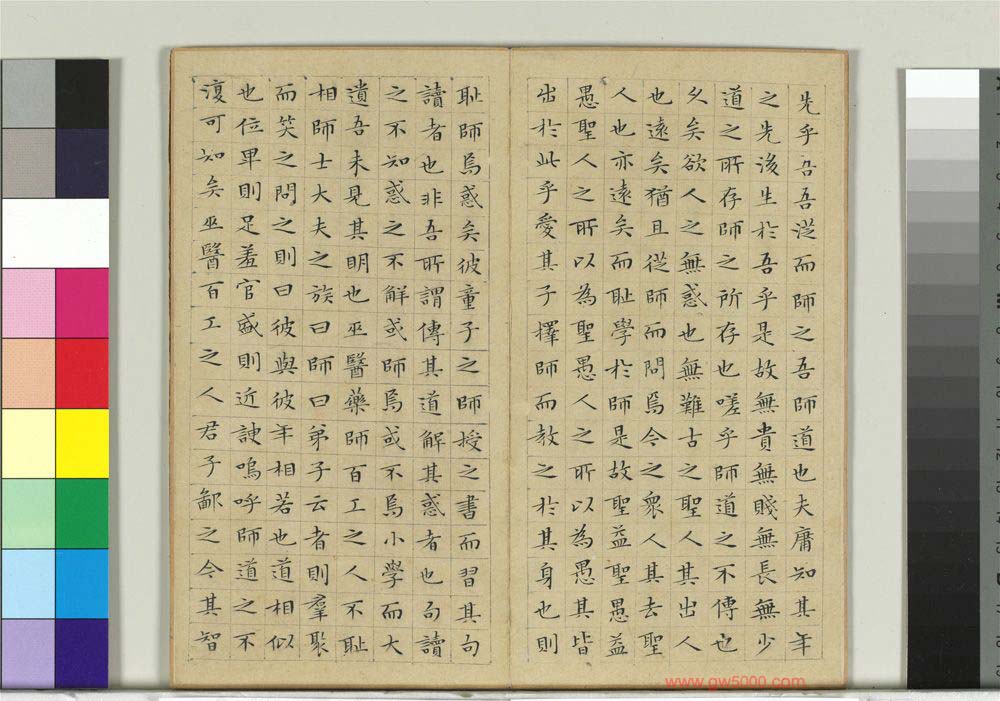 先乎吾吾從而師之吾師道也夫庸知其年
之先後生於吾乎是故無貴無賤無長無少
道之所存師之所存也嗟乎師道之不傳也
久矣欲人之無惑也無難古之聖人其出人
也遠矣猶且從師而問焉今之衆人其去聖
人也亦遠矣而耻學於師是故聖益聖愚益
愚聖人之所以為聖愚人之所以為愚其皆
出於此乎愛其子擇師而教之於其身也則
耻師焉惑矣彼童子之師授之書而習其句
讀者也非吾所謂傳其道解其惑者也句讀
之不知惑之不解或師焉或不焉小學而大
遺吾未見其明也巫醫藥師百工之人不耻
相師士大夫之族曰師曰弟子云者則羣聚
而笑之問之則曰彼與彼年相若也道相似
也位卑則足羞官盛則近諛嗚呼師道之不
復可知矣巫醫百工之人君子鄙之今其智
www.gw5000.com